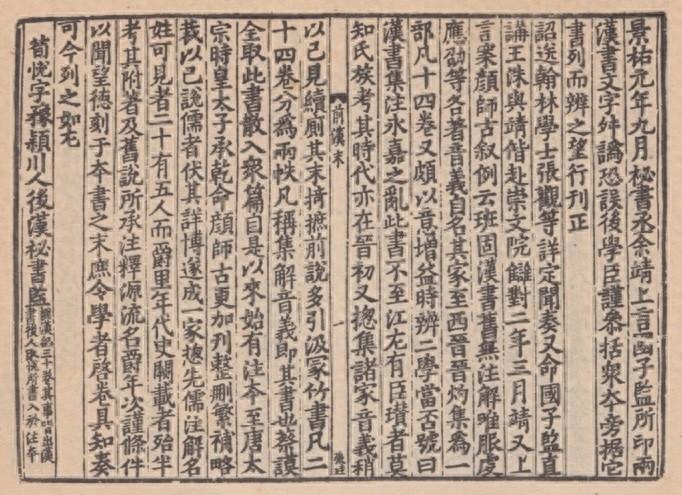 景祐元年九月秘書丞余靖上言國子監所印兩
漢書文字舛譌恐誤後學臣謹叅括衆本旁據它
書列而辨之望行刊正
詔送翰林學士張觀等詳定聞奏又命國子監直
講王洙與靖偕赴崇文院讎對二年三月靖又上
言案顏師古叙例云班固漢書舊無注解唯服虔
應劭等各著音義自名其家至西晉晉灼集為一
部凡十四卷又頗以意增益時辨二學當否號曰
漢書集注永嘉之亂此書不至江左有臣瓚者莫
知氏族考其時代亦在晉初又揔集諸家音義稍
前漢末 一
以己見續厠其末掎摭前說多引汲冢竹書凡二
十四卷分為兩帙凡稱集解音義即其書也蔡謨
全取此書散入衆篇自是以來始有注本至唐太
宗時皇太子承乾命顏師古更加刊整刪繁補略
裁以己說儒者伏其詳博遂成一家揔先儒注解名
姓可見者二十有五人而爵里年代史闕載者殆半
考其附著及舊說所承注釋源流名爵年次謹條件
以聞望德刻于本書之末庶令學者啓卷具知奏
可今列之如左
荀悅字豫潁川人後漢秘書監
撰漢紀三十卷其事皆出漢
書後人取悅所書入於注本